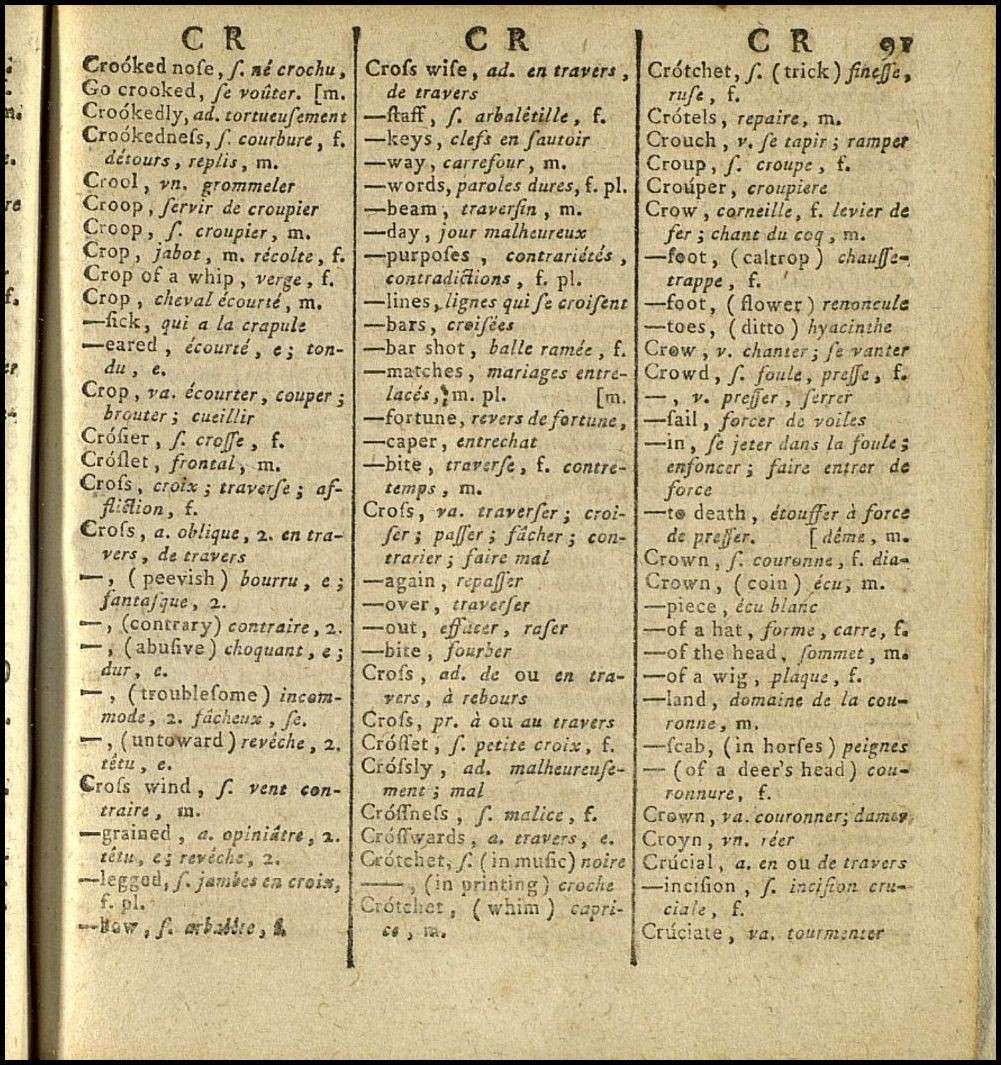 C R
Croóked noſe, ſ. né crochu,
Go crooked, ſe voûter. [m.
Croókedly, ad. tortueuſement
Croókedneſs, ſ. courbure, f.
détours, replis, m.
Crool, vn. grommeler
Croop, ſervir de croupier
Croop, ſ. croupier, m.
Crop, jabot, m. récolte, f.
Crop of a whip, verge, f.
Crop, cheval écourté, m.
—ſick, qui a la crapule
—eared, écourté, e; ton-
du, e.
Crop, va. écourter, couper;
brouter; cueillir
Cróſier, ſ. croſſe, f.
Cróſlet, frontal, m.
Croſs, croix; traverſe; af-
fliction, f.
Croſs, a. oblique, 2. en tra-
vers, de travers
—, (peeviſh) bourru, e;
fantaſque, 2.
—, (contrary) contraire, 2.
—, (abuſive) choquant, e;
dur, e.
—, (troubleſome) incom-
mode, 2. fâcheux, ſe.
—, (untoward) revêche, 2.
têtu, e.
Croſs wind, ſ. vent con-
traire, m.
—grained, a. opiniâtre, 2.
têtu, e; revêche, 2.
—legged, ſ. jambes en croix,
f. pl.
—bow, ſ. arbalête, f.
C R
Croſs wiſe, ad. en travers,
de travers
—ſtaff, ſ. arbalêtille, f.
—keys, clefs en ſautoir
—way, carrefour, m.
—words, paroles dures, f. pl.
—beam, traverſin, m.
—day, jour malheureux
—purpoſes, contrariétés,
contradictions, f. pl.
—lines, lignes qui ſe croiſent
—bars, croiſées
—bar shot, balle ramée, f.
—matches, mariages entre-
lacés, m. pl. [m.
—fortune, revers de fortune,
—caper, entrechat
—bite, traverſe, f. contre-
temps, m.
Croſs, va. traverſer; croi-
ſer; paſſer; fâcher; con-
trarier; faire mal
—again, repaſſer
—over, traverſer
—out, effacer, raſer
—bite, fourber
Croſs, ad. de ou en tra-
vers, à rebours
Croſs, pr. à ou au travers
Cróſſet, ſ. petite croix, f.
Cróſsly, ad. malheureuſe-
ment; mal
Cróſſneſs, ſ. malice, f.
Cróſſwards, a. travers, e.
Crótchet, ſ. (in muſic) noire
——, (in printing) croche
Crótchet, (whim) capri-
ce, m.
C R 91
Crótchet, ſ. (trick) fineſſe,
ruſe, f.
Crótels, repaire, m.
Crouch, v. ſe tapir; ramper
Croup, ſ. croupe, f.
Croúper, croupiere
Crow, corneille, f. levier de
fer; chant du coq, m.
—foot, (caltrop) chauſſe-
trappe, f.
—foot, (flower) renoncule
—toes, (ditto) hyacinthe
Crow, v. chanter; ſe vanter
Crowd, ſ. foule, preſſe, f.
—, v. preſſer, ſerrer
—ſail, forcer de voiles
—in, ſe jeter dans la foule;
enfoncer; faire entrer de
force
—to death, étouffer à force
de preſſer. [dême, m.
Crown, ſ. couronne, f. dia-
Crown, (coin) écu, m.
—piece, écu blanc
—of a hat, forme, carre, f.
—of the head, ſommet, m.
—of a wig, plaque, f.
—land, domaine de la cou-
ronne, m.
—ſcab, (in horſes) peignes
— (of a deer's head) cou-
ronnure, f.
Crown, va. couronner; damer
Croyn, vn. réer
Crúcial, a. en ou de travers
—inciſion, ſ. inciſion cru-
ciale, f.
Crúciate, va. tourmenter